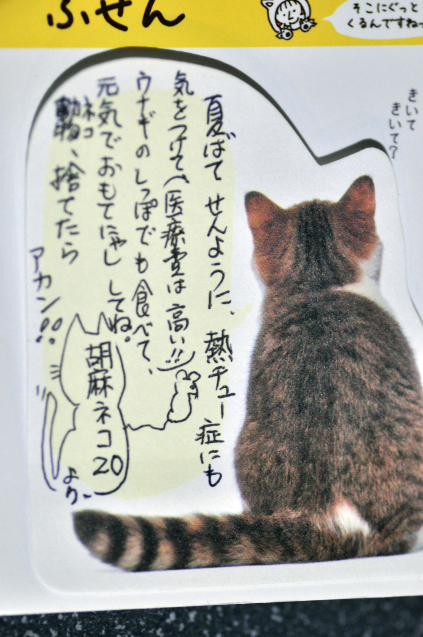 ふせん
そこにぐっと
くるんですねっ
きいて
きいて?
夏ばて せんように、熱チュー症にも
気をつけて(医療費は高い!!)
ウナギのしっぽでも食べて、
元気でおもてにゃし してね。
ネコ
、捨てたら
アカン!!
胡麻ネコ20
より